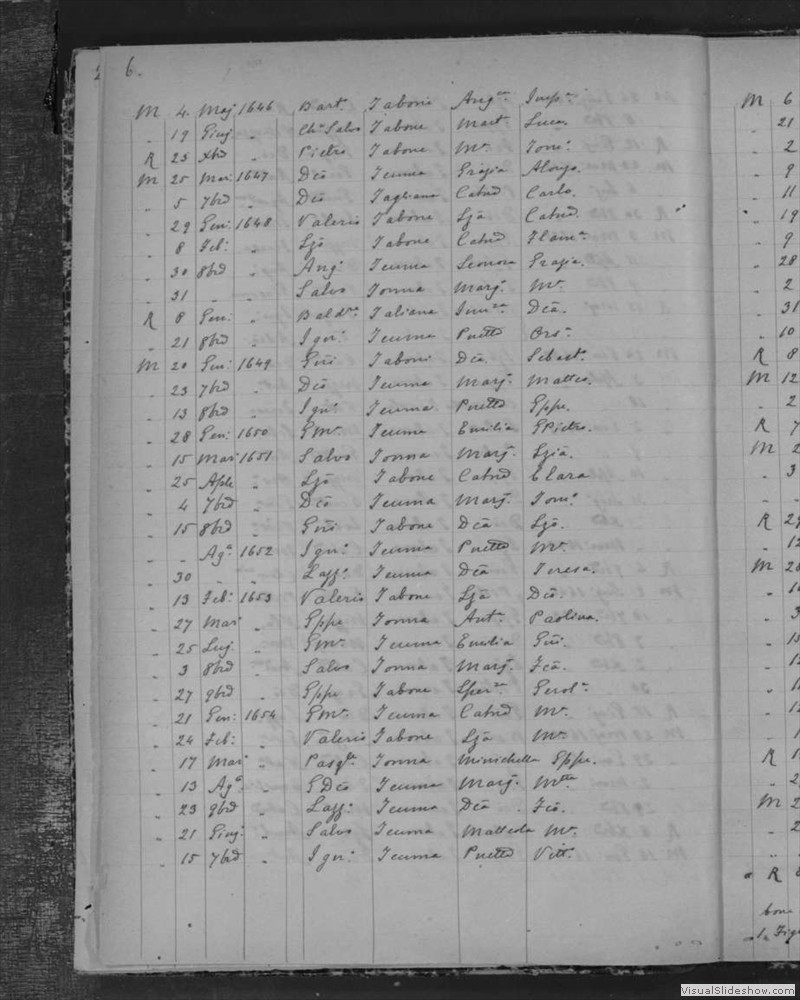 6.
M 4 Maj 1646 Bart. Taboni Ang.ca Imp.a
" 19 Giug " Ch.o Salvo Tabone Mart. Luca.
R 23 Xbd " Pietro Tabone M.a Tom.o
M 25 Mar. 1647 Dco Teuma Grazia Alonzo.
" 5 7bd " Dco Tagliana Catnd Carlo.
" 29 Gen. 1648 Valerio Tabone Lza Catnd.
" 8 Feb. " Lzo Tabone Catnd
" 30 8bd " Ang.o Teuma Leonora Grazia.
" 31 " " Salvo Tonna Marj. M.a
R 8 Gen. " Bald.re Taliana Dca.
" 21 8bd " Ign.o Teuma Pnetta Ors.a
M 20 Gen. 1649 Gni Taboni Dca Sebast.
" 23 7bd " Dco Teuma Marj. Matteo.
" 13 8bd " Ign.o Teuma Pnetta Gppe.
" 28 Gen. 1650 GM.a Teuma Emilia GPietro.
" 15 Mar 1651 Salvo Tonna Marj. Lzia.
" 25 Aple " Lzo Tabone Catnd Clara
" 4 7bd " Dco Teuma Marj. Tom.o
" 15 8bd " Gni Tabone Dca Lzo.
" " Ag.o 1652 Ign.o Teuma Pnetta M.a
" 30 " " Lazz.o Teuma Dca Teresa.
" 13 Feb. 1653 Valerio Tabone Lza Dco
" 27 Mar " Gppe Tonna Ant. Paolina.
" 25 Lug. " GM.a Teuma Emilia Gni.
" 3 8bd " Salvo Tonna Marj. Fca.
" 27 9bd " Gppe Tabone Sper.za Gerol.a
" 21 Gen. 1654 GM.a Teuma Catnd M.a
" 24 Feb. " Valerio Tabone Lza M.a
" 17 Mar " Pasq.le Tonna Minichella Gppe.
" 13 Ag.o " GDco Teuma Marj. M.tta
" 23 9bd " Lazz.o Teuma Dca Fco.
" 21 Giug. " Salvo Teuma Matteola M.a
" 15 7bd " Ign.o Teuma Pnetta Vitt.a
M 6
" 21
" 2
" 9
" 11
" 19
" 9
" 28
" 2
" 31
" 10
R 8
M 12
" 2
R 7
M 2
" 3
R 29
" 12
M 28
R
M 2
R
VisualSlideshow.com